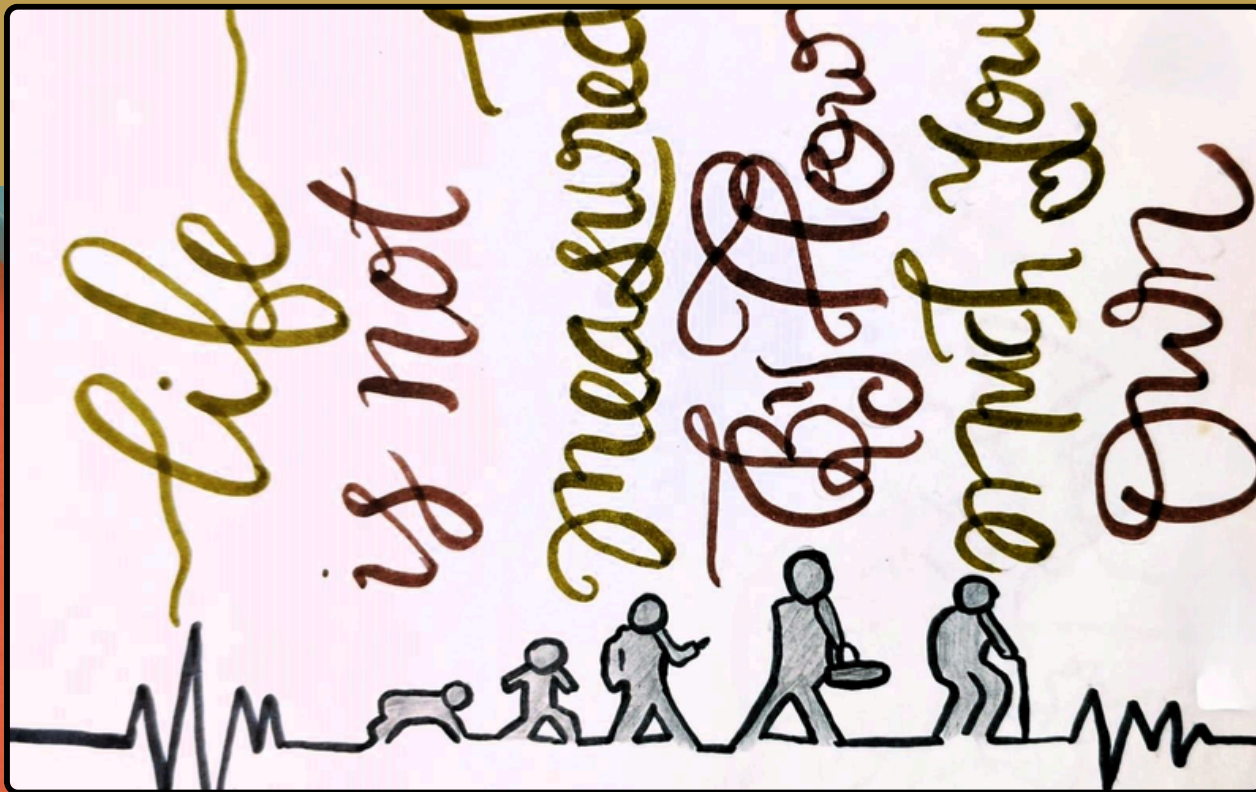 life
is not
measured
By How
much You
Own